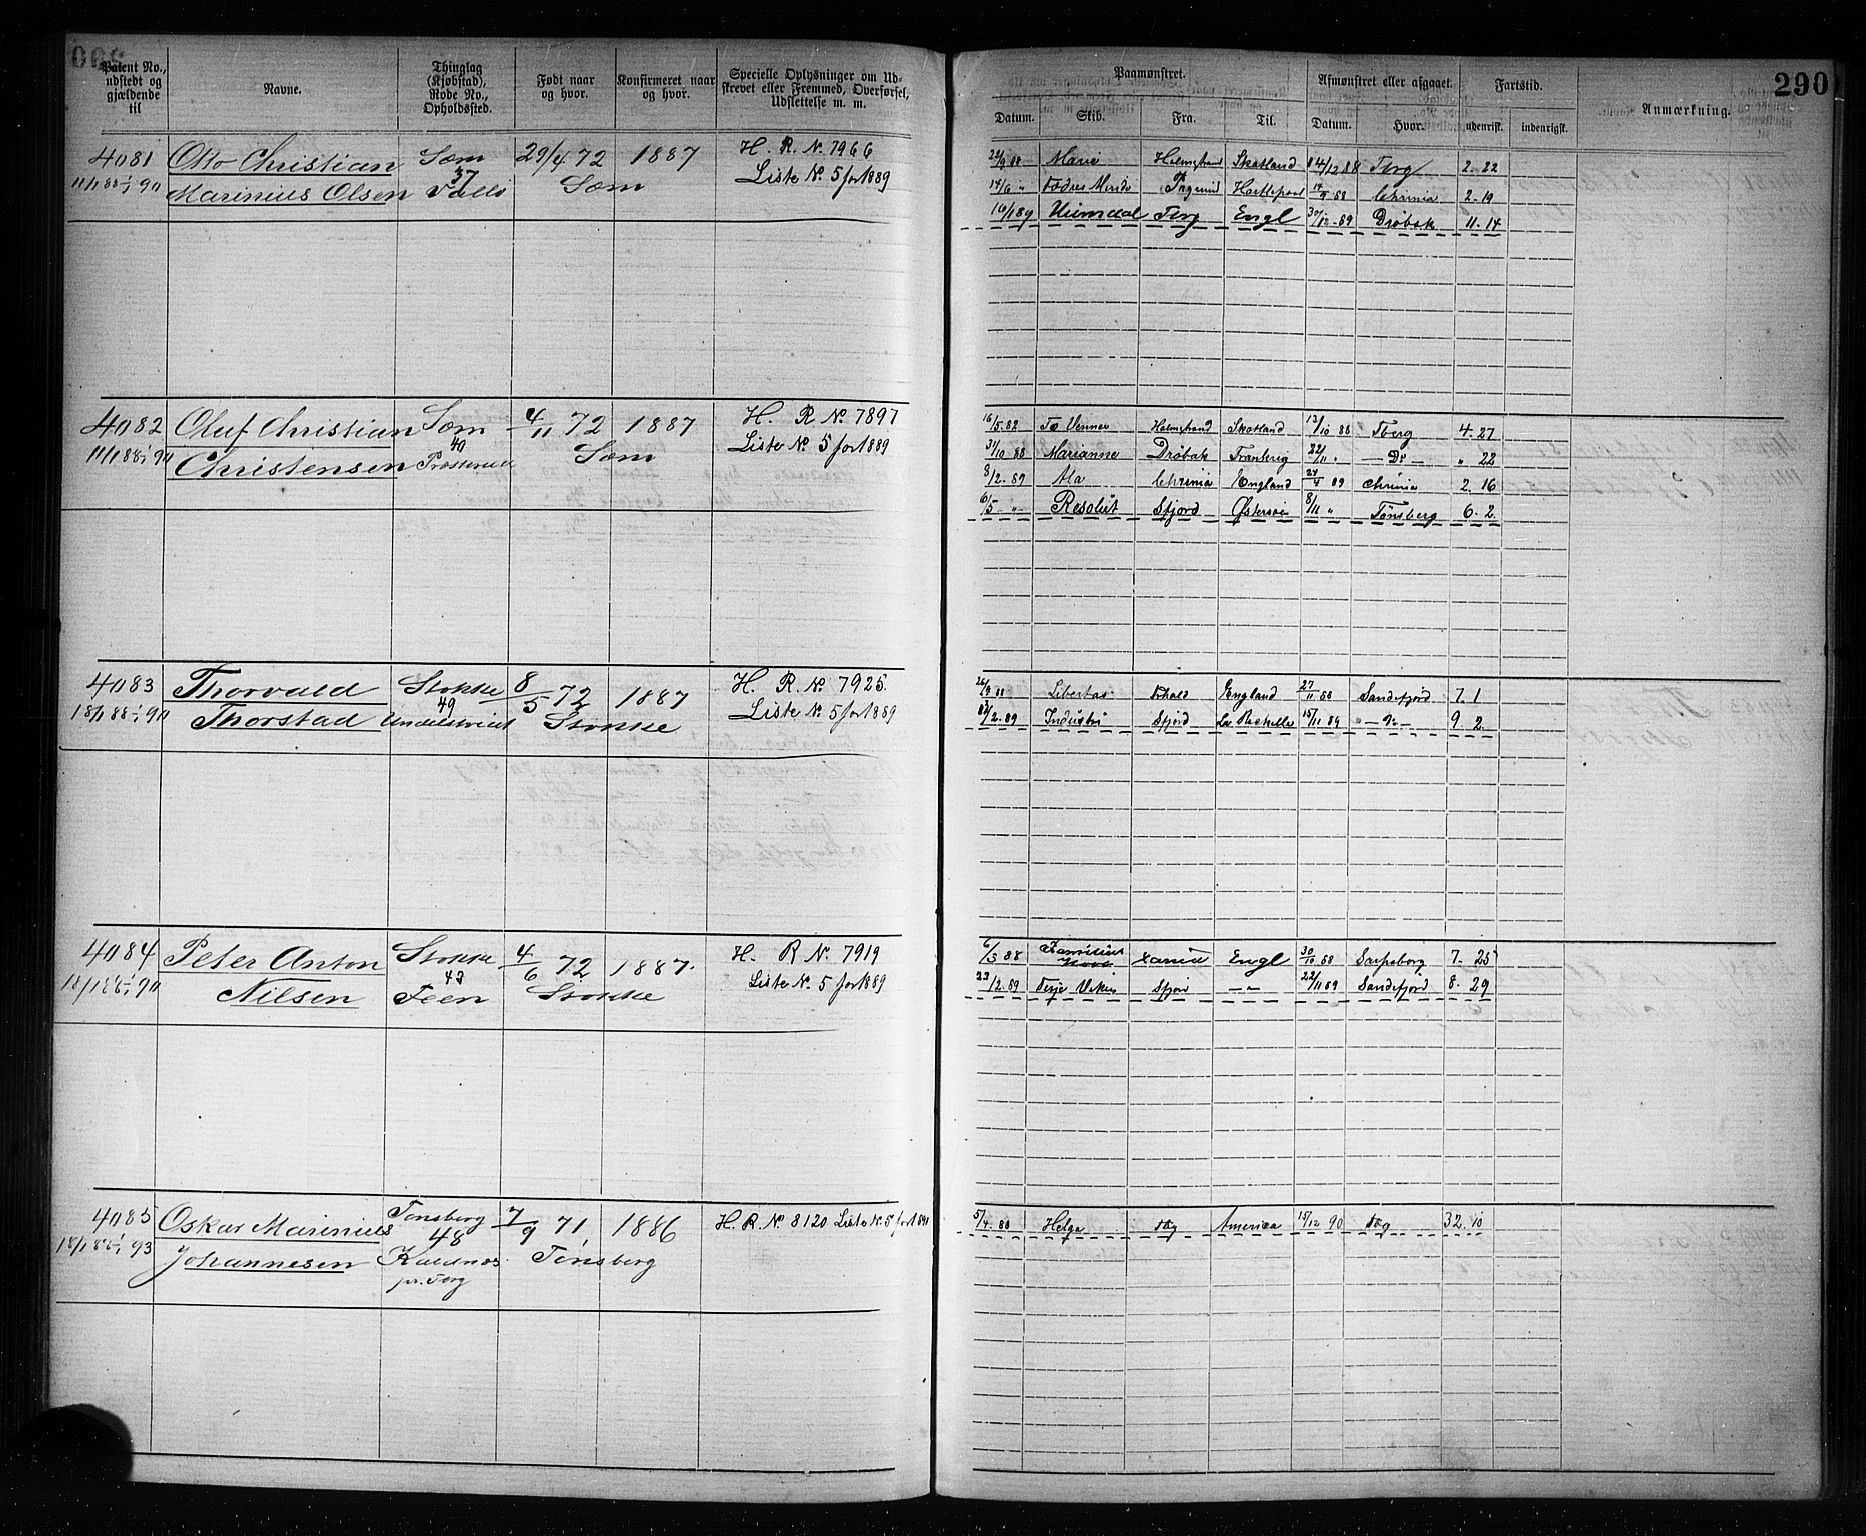 290
Patent No., udstedt og gjældende til
Navne.
Thinglag (Kjøbstad), Rode No., Opholdssted.
Født naar og hvor.
Konfirmeret naar og hvor.
Specielle Oplysninger om Udskrevet eller Fremmed, Overførsel, Udslettelse m. m.
Paamønstret.
Afmønstret eller afgaaet.
Fartstid.
Anmærkning.
Datum. Skib. Fra. Til. Datum. Hvor. udenrigsk. indenrigsk.
4081 Otto Christian Sæm 29/4 72 1887 H. R. N. 7966
11/1 88 1/1 91 Marinius Olsen 37 Vallø Sæm Liste N. 5 for 1889
Marie Holmstrand Skotland 4/12 88 Tbrg 2. 22
14/6 " Fødres Minde Hartlepool Chrinia 2. 19
16/1 89 Heimdal Tbrg Engl 30/12 89 Drøbak 11. 14
4082 Oluf Christian Sæm 4/11 72 1887 H. R N. 7897
11/1 88 1/1 91 Christensen 49 Sæm Liste N. 5 for 1889
16/5 To Venner Holmstrand Skotland 13/10 88 Tberg 4. 27
31/10 88 Marianne Drøbak 22/11 " Do " 22
8/2 89 Ala Chrinia England 24/4 89 Chrinia 2. 16
6/5 " Resolut Sfjord Østersøen 8/11 " Tønsberg 6. 2.
4083 Thorvald Stokke 8/5 72 1887 H. R. N. 7925.
18/1 88 1/1 91 Thorstad 49 Stokke Liste N. 5 for 1889
Libertas England 27/11 88 Sandefjord 7. 1
Industri Sfjord La Rochelle 15/11 89 " Do 9. 2.
4084 Peter Anton Stokke 4/6 72 1887. H. R N. 7919
18/1 88 1/1 91 Nilsen Feen Stokke Liste N. 5 for 1889
6/3 88 Familiens Engl 30/10 88 Sarpsborg 7. 25
23/2 89 Terje Viken Sfjord " 22/11 89 Sandefjord 8. 29
4085 Oskar Marinius Tønsberg 7/9 71, 1886 H. R. N. 8120 Liste N. 5 for 1891
18/1 88 1/1 93 Johannesen 48 Kaldnæs Tønsberg
pr. Tbrg
5/4 88 Helga Tbg America 15/12 90 Tbg 32. 10